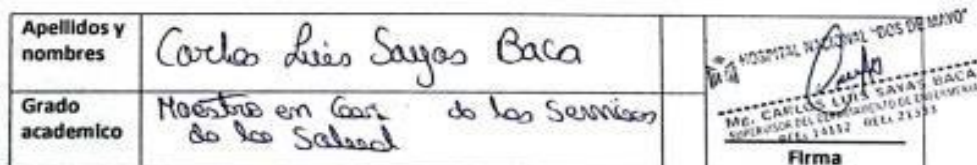 Apellidos y
nombres
Carlos Luis Sayas Baca
Grado
academico
Maestro en de los Servicios
de la Salud
HOSPITAL NACIONAL "DOS DE MAYO"
Mg. CARLOS LUIS SAYAS BACA
SUPERVISOR DEL DEPARTAMENTO DE ENFERMERIA
Firma